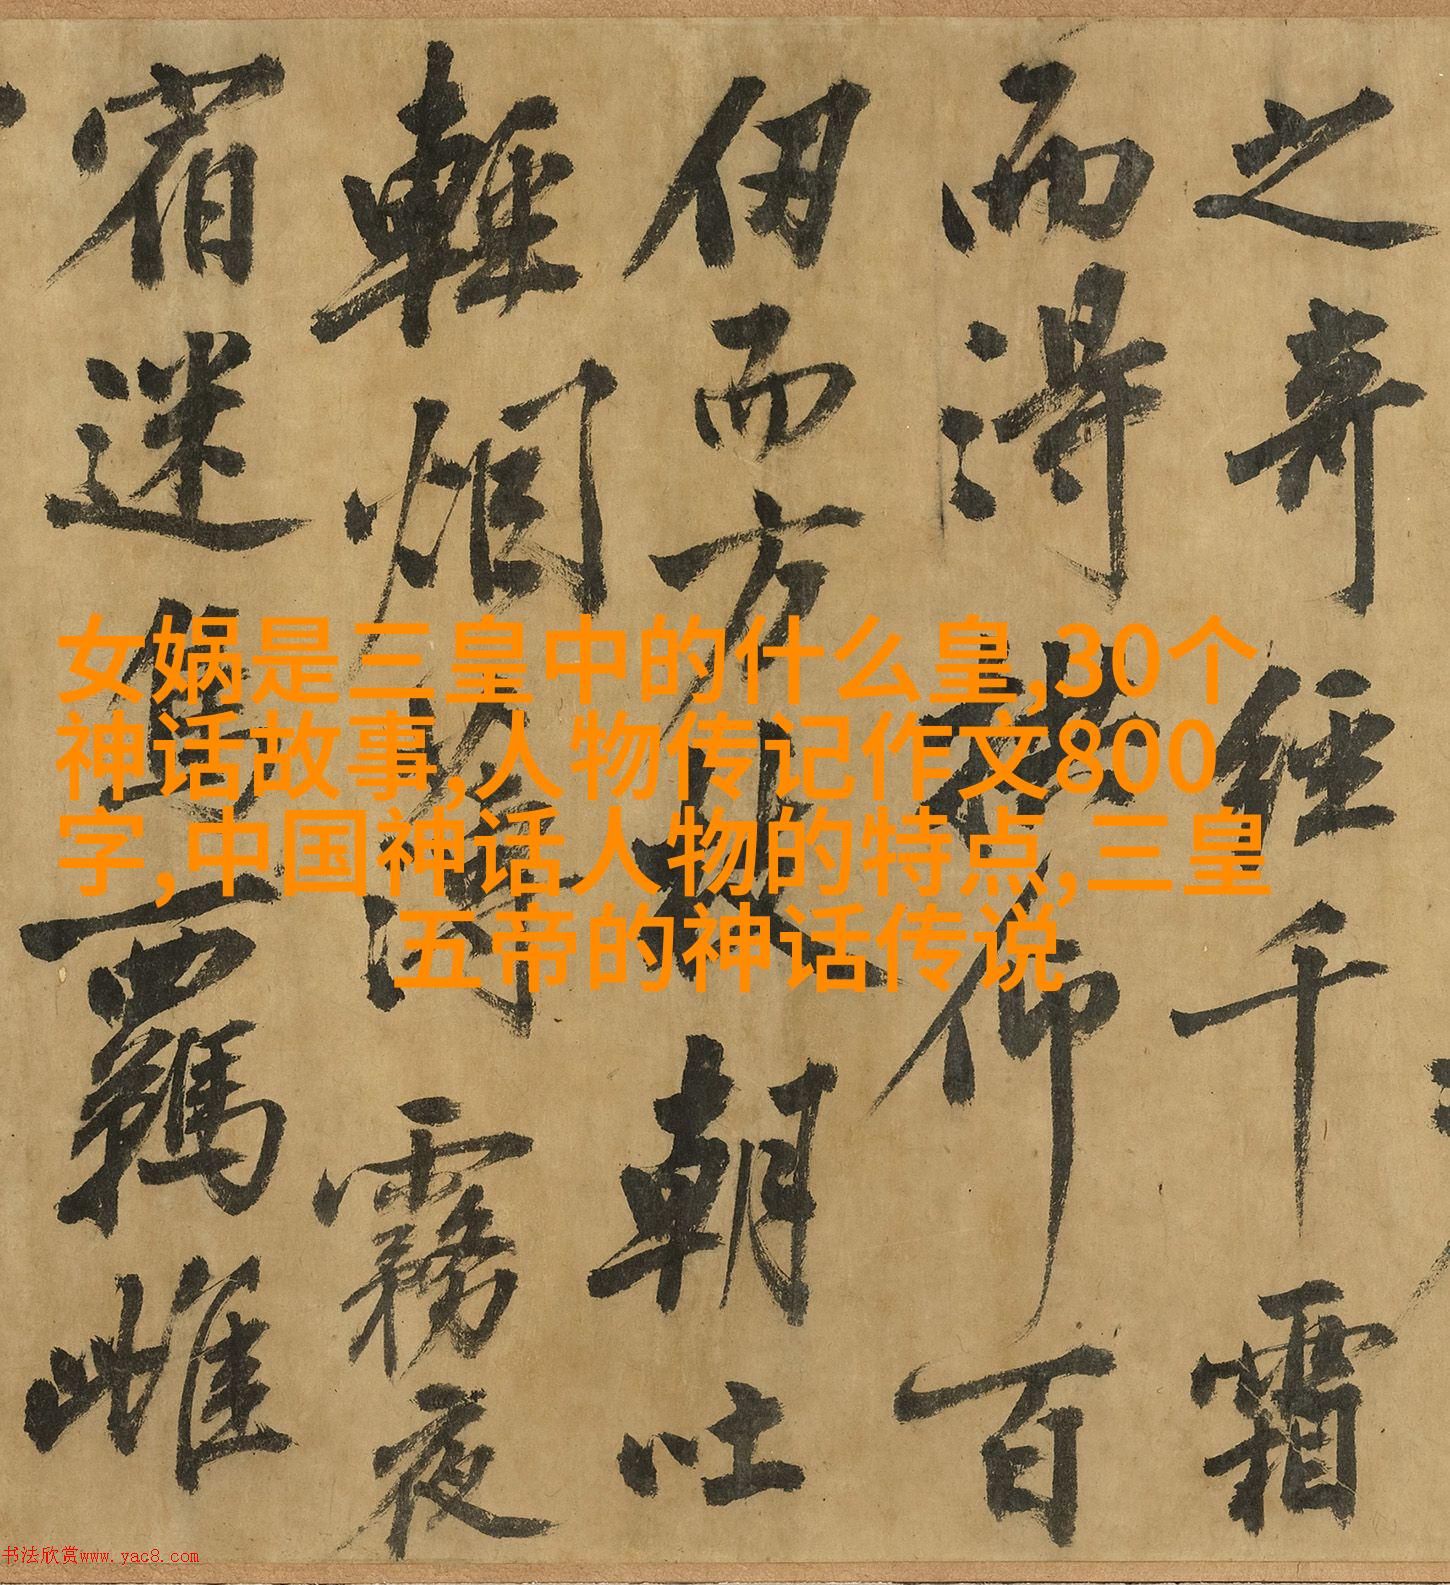 之奇經千霜
而得拱仰百
仞而方枝朝吐
輕烟薄霧夜
宿迷鳥羈雌
女娲是三皇中的什么皇,30个
神话故事,人物传记作文800
字,中国神话人物的特点,三皇
五帝的神话传说
书法欣赏www.yac8.com